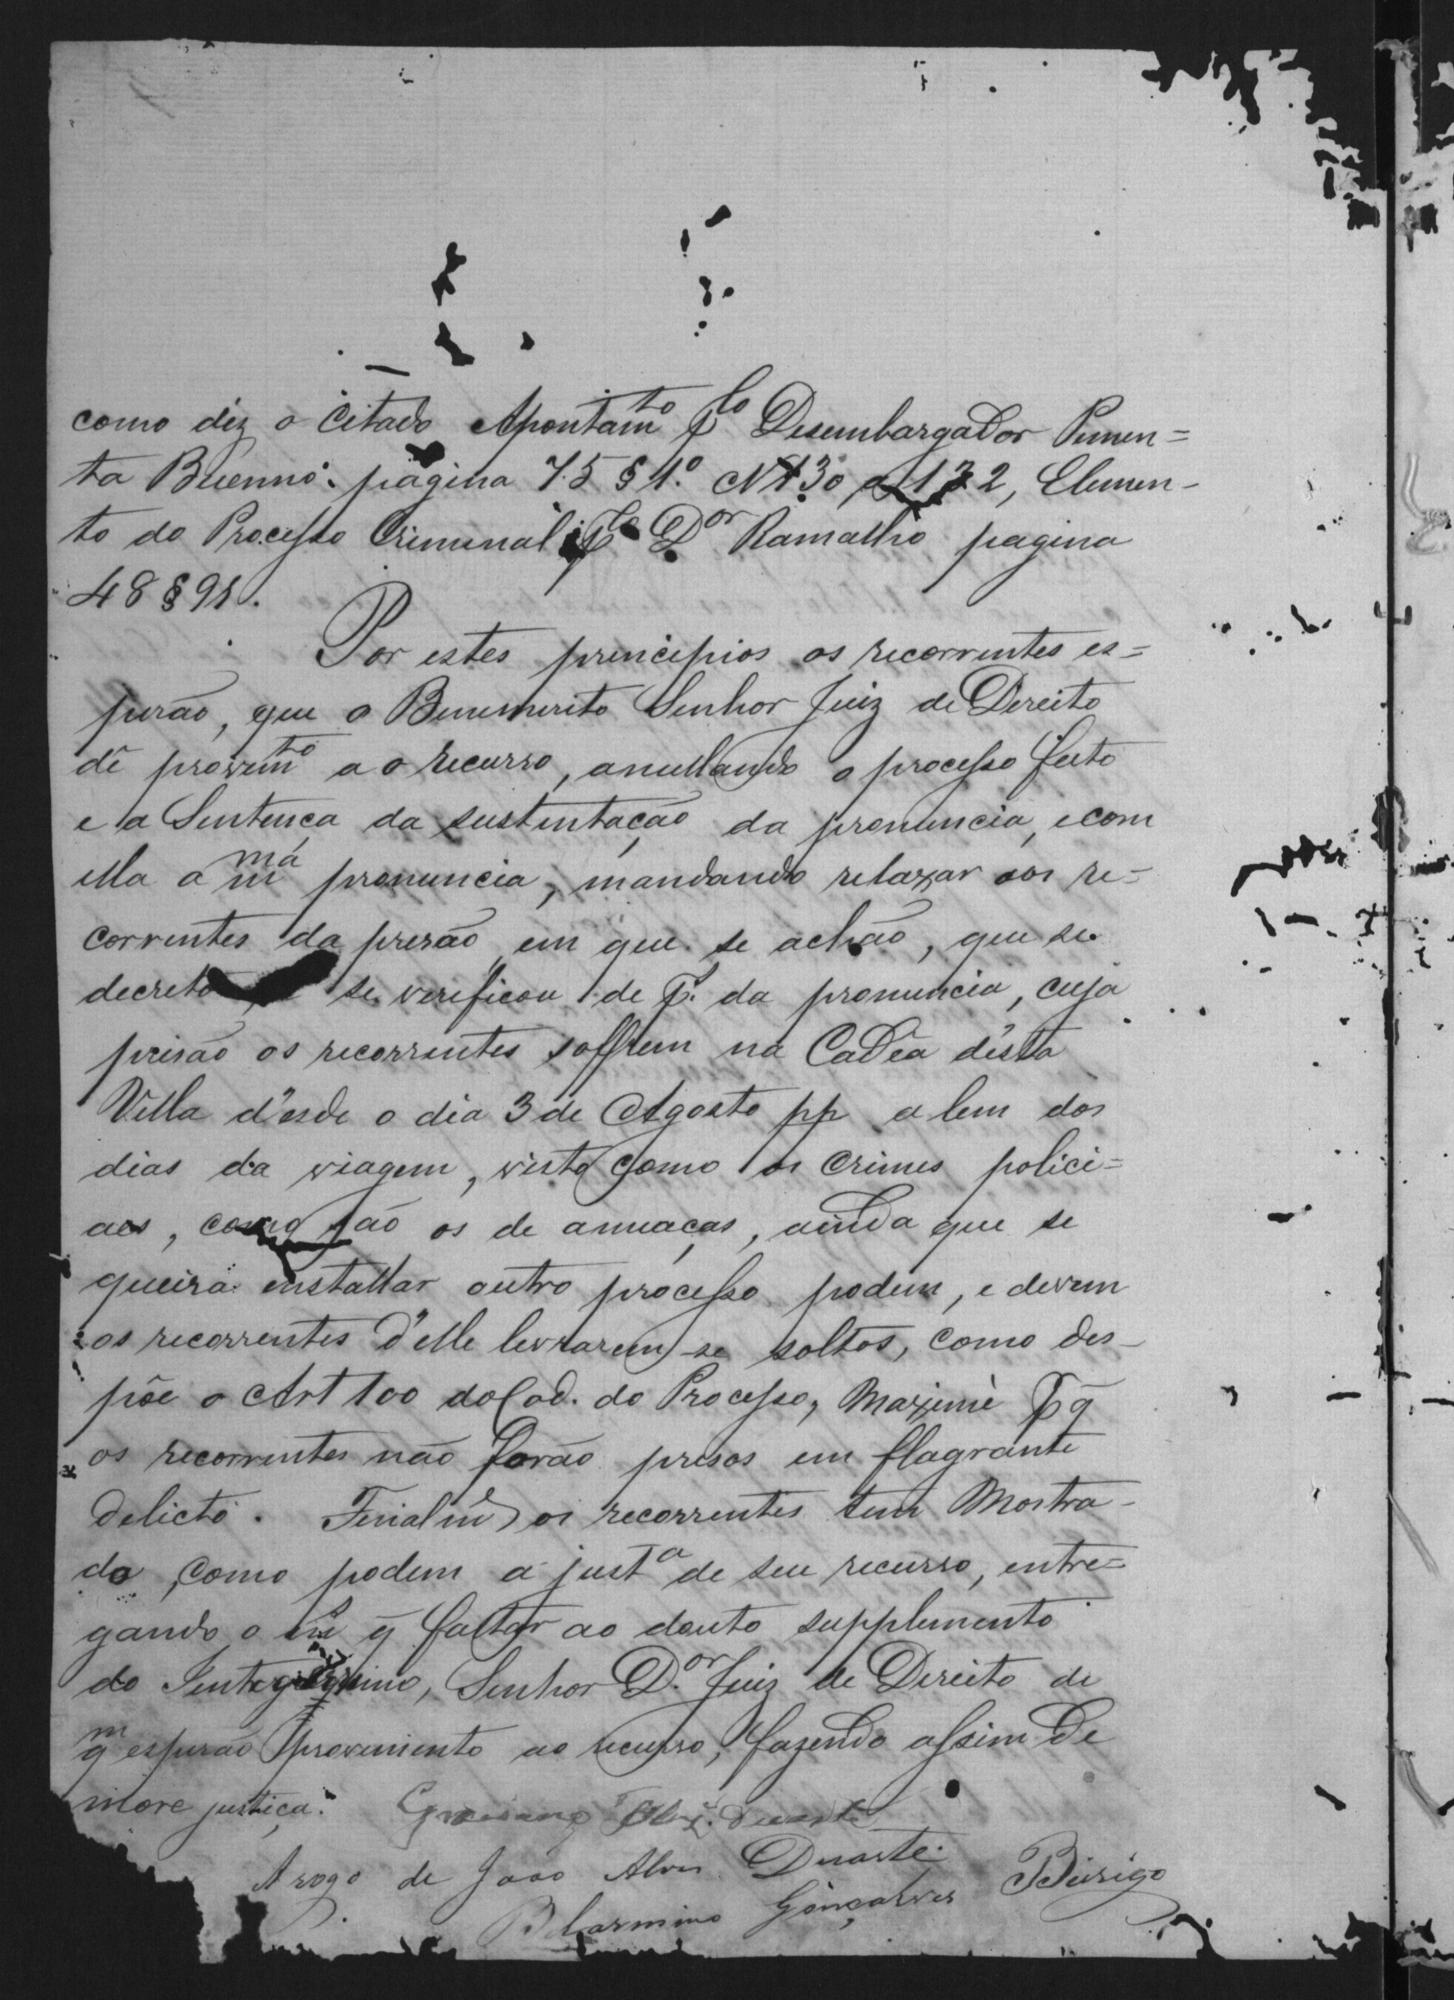 como diz o Citado Apontam.to p.lo Desembargador Pimen=
ta Buenno: pagina 75 § 1.º N 130 a 132, Elemen-
to do Processo Criminal p.lo D.or Ramalho pagina
48 § 91.
Por estes principios os recorrentes es=
perão, que o Benemerito Senhor Juiz de Direito
dê provim.to ao recurso, anullando o processo feito
e a Sentença da sustentação da pronuncia, e com
ella a m.ma pronuncia, mandando relaxar aos re-
correntes da prisão em que se achão, que se
decreto se verificou de p. da pronuncia, cuja
prisão os recorrentes soffrem na Cadêa désta
Villa d'esde o dia 3 de Agosto pp alem dos
dias da viagem, visto como os Crimes polici=
aes, como são os de ameaças, ainda que se
queira enstallar outro processo podem, e devem
os recorrentes d'elle levrarem-se soltos, como des-
põe o Art 100 do Cod. do Processo, Maximè p q̃
os recorrentes não forão presos em flagrante
delicto. Finalm.e os recorrentes tem Mostra-
do, como podem a just.a de seu recurso, entre=
gando o m.s q̃ faltar ao douto supplemento
do Senhor D.or Juiz de Direito de
q.m esperão provimento ao recurso, fazendo assim De
more justiça. Alz. Duarte
A rogo de João Alves Duarte.
Belarmino Gonçalves Búrigo